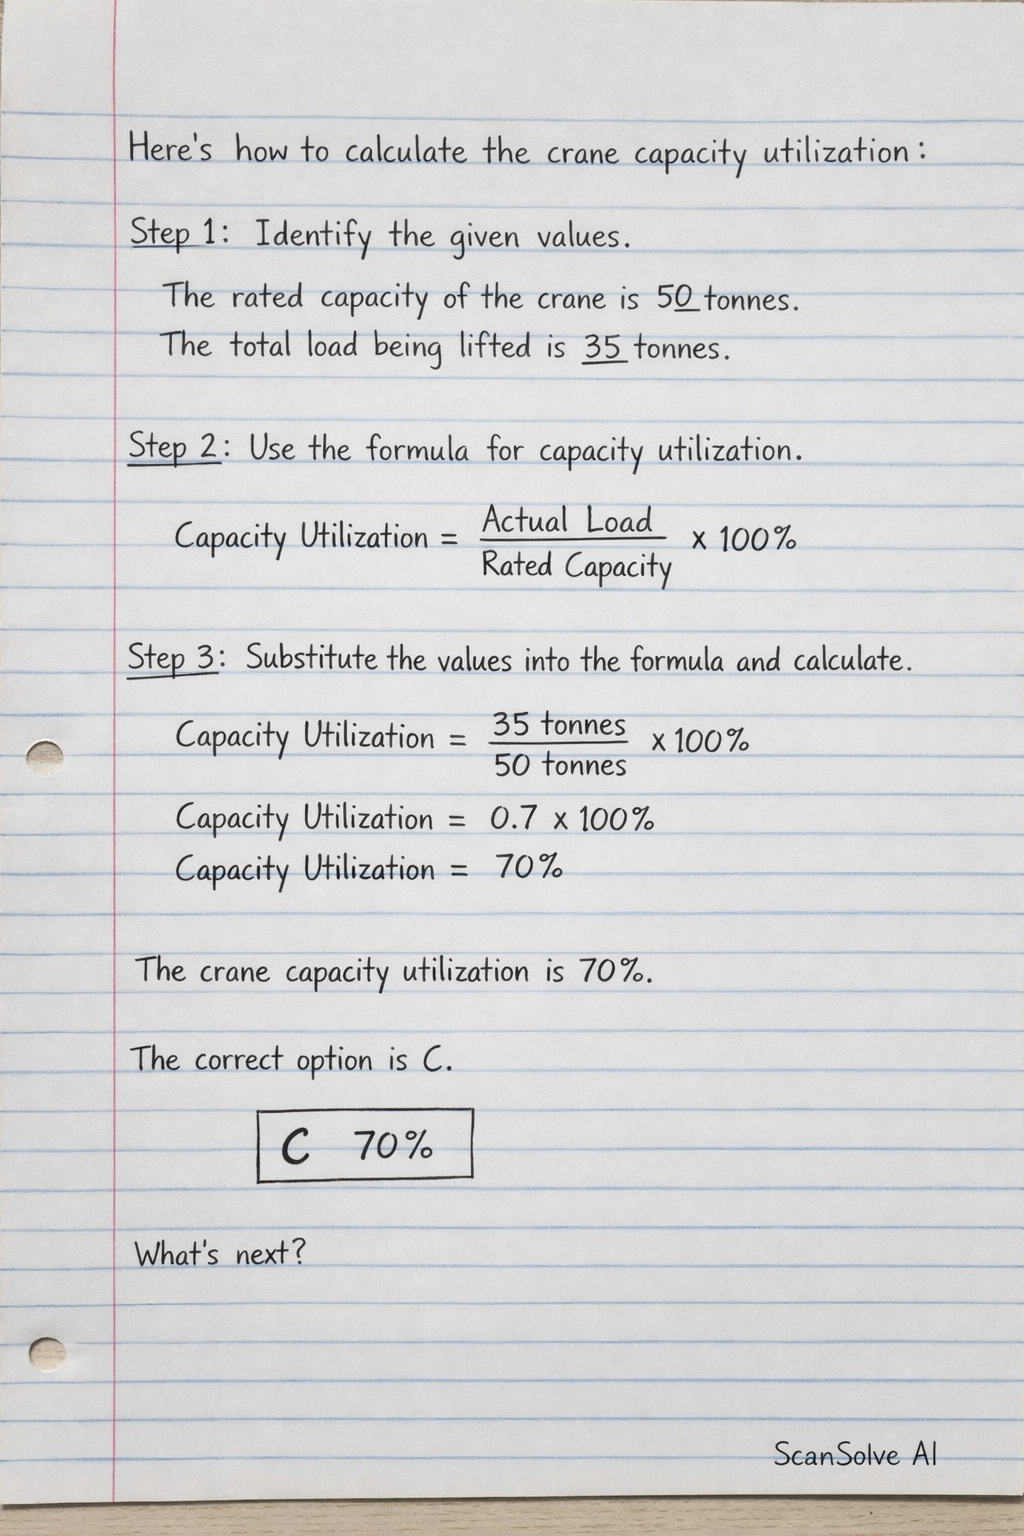 Here's how to calculate the crane capacity utilization:
Step 1: Identify the given values.
The rated capacity of the crane is 50 tonnes.
The total load being lifted is 35 tonnes.
Step 2: Use the formula for capacity utilization.
Capacity Utilization = Actual Load / Rated Capacity x 100%
Step 3: Substitute the values into the formula and calculate.
Capacity Utilization = 35 tonnes / 50 tonnes x 100%
Capacity Utilization = 0.7 x 100%
Capacity Utilization = 70%
The crane capacity utilization is 70%.
The correct option is C.
C 70%
What's next?
ScanSolve AI